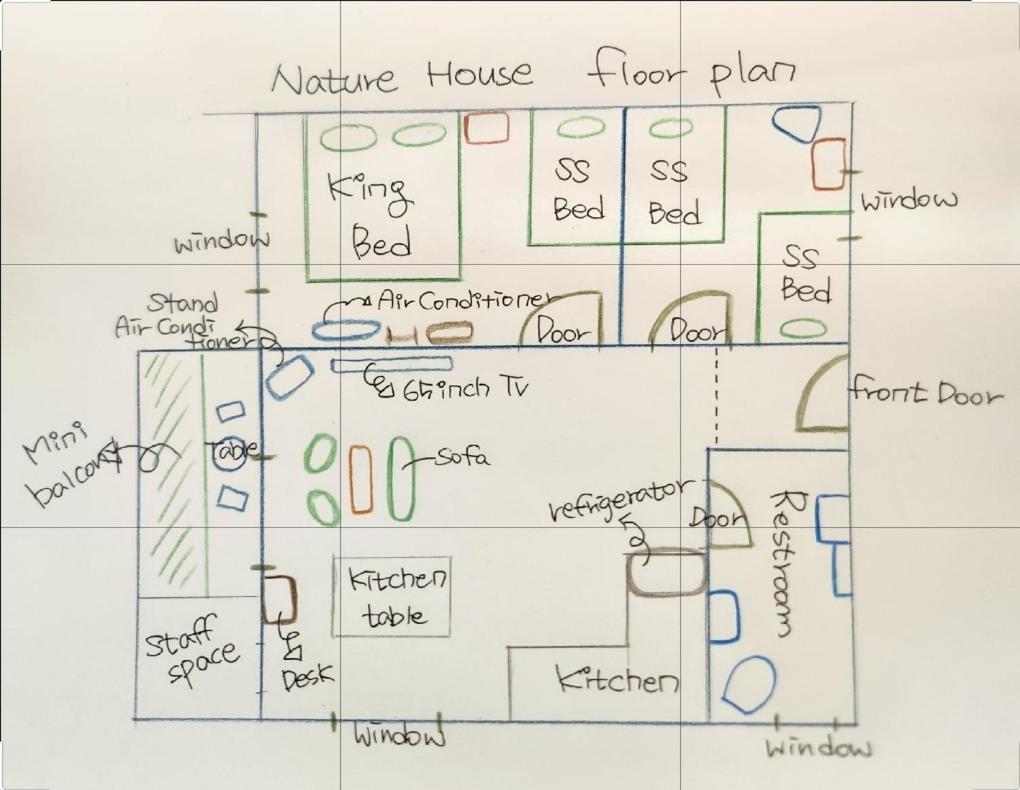 Nature House floor plan
King
Bed
SS
Bed
SS
Bed
window
window
SS
Bed
Stand
Air Condi
tioner
Air Conditioner
Door
Door
65inch Tv
front Door
Mini
balcony
Table
Sofa
refrigerator
Door
Restroom
Kitchen
table
Staff
space
Desk
Kitchen
window
window